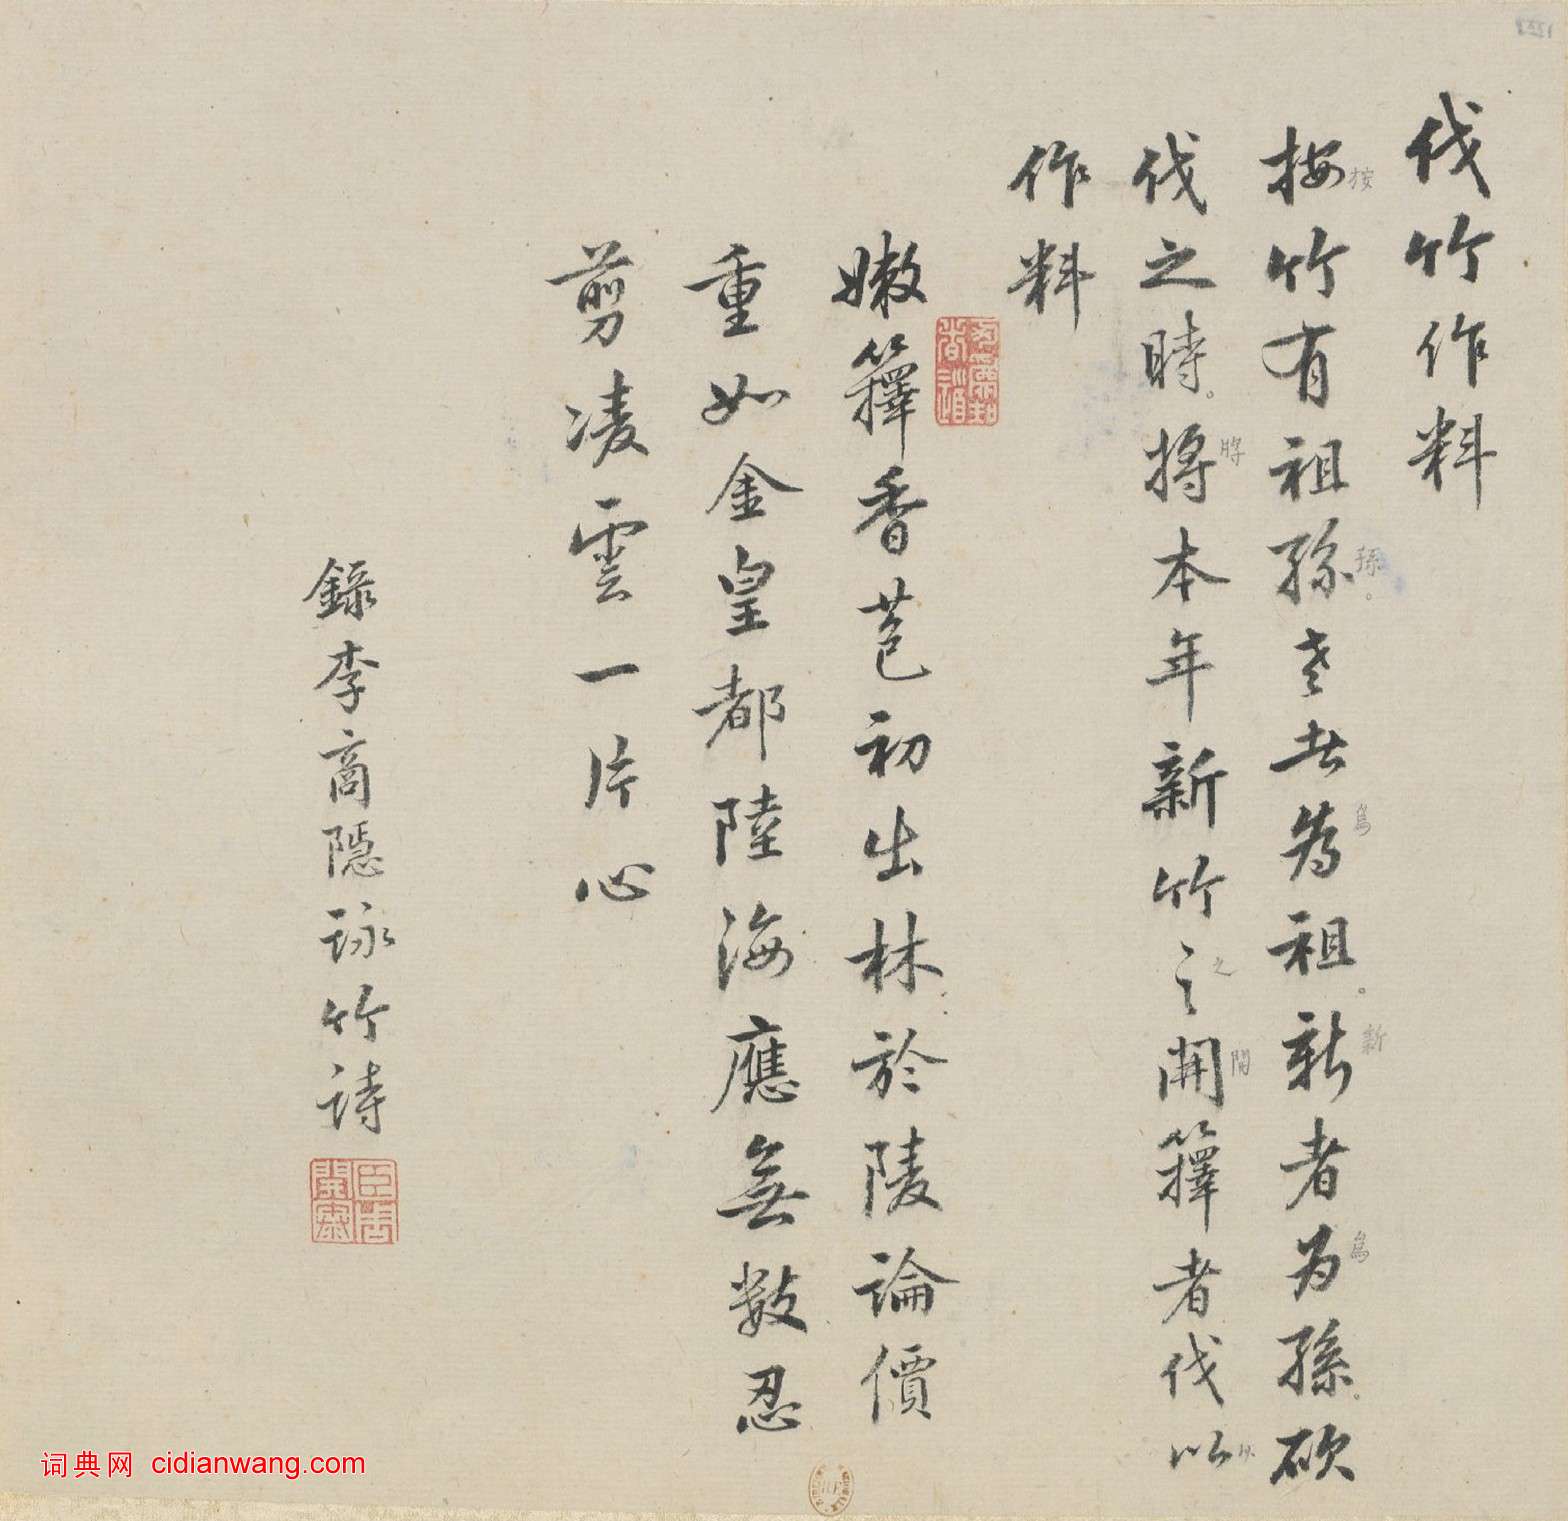 伐竹作料
按竹有祖孫老者為祖。新者为孫。砍
伐之時。將本年新竹之開籜者伐以
作料
嫩籜香苞初出林於陵論價
重如金皇都陸海應無數忍
剪凌雲一片心
錄李商隱詠竹詩
按
孫。
為
新
為
將
之
開
以
词典网 cidianwang.com